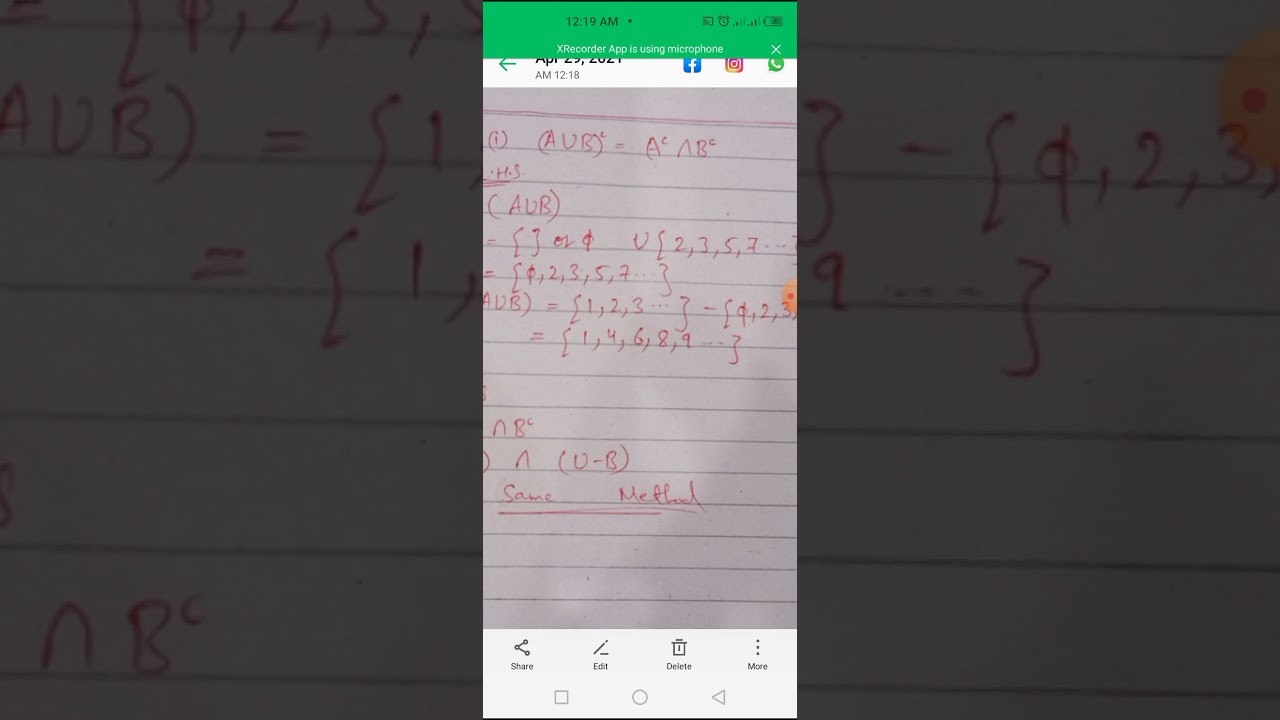 12:19 AM
XRecorder App is using microphone
Apr 29, 2021
AM 12:18
(i) (A∪B)ᶜ = Aᶜ ∩ Bᶜ
.H.S
(A∪B)
= { } or ϕ ∪ {2,3,5,7...}
= {ϕ,2,3,5,7...}
A∪B) = {1,2,3...} - {ϕ,2,3,
= {1,4,6,8,9...}
∩ Bᶜ
) ∩ (U-B)
Same Method
Share
Edit
Delete
More